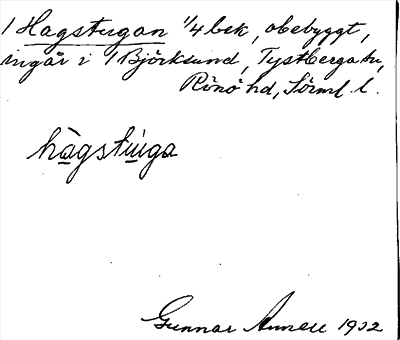 1 Hagstugan 1/4 bek, obebyggt,
ingår i 1 Björksund, Tystberga sn,
Rönö hd, Sörml. l.
hàgstu̇iga
Gunnar Annell 1932